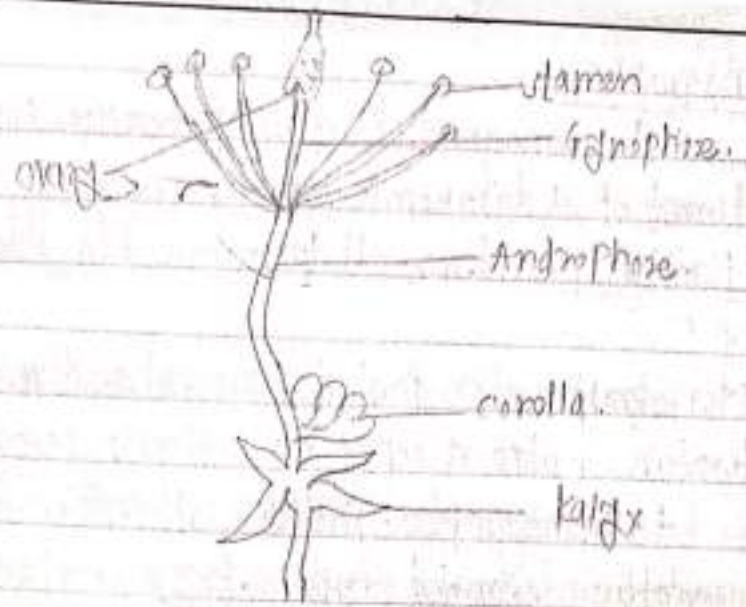 stamen
Gynophore.
ovary
Androphore.
corolla.
kalyx